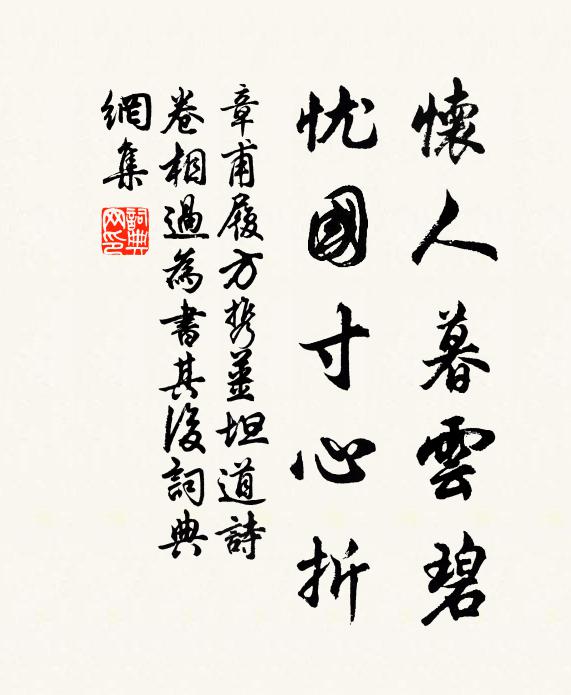 懷人暮雲碧
憂國寸心折
章甫履方携薑坦道詩
卷相過為書其後詞典
網集
詞典
网印